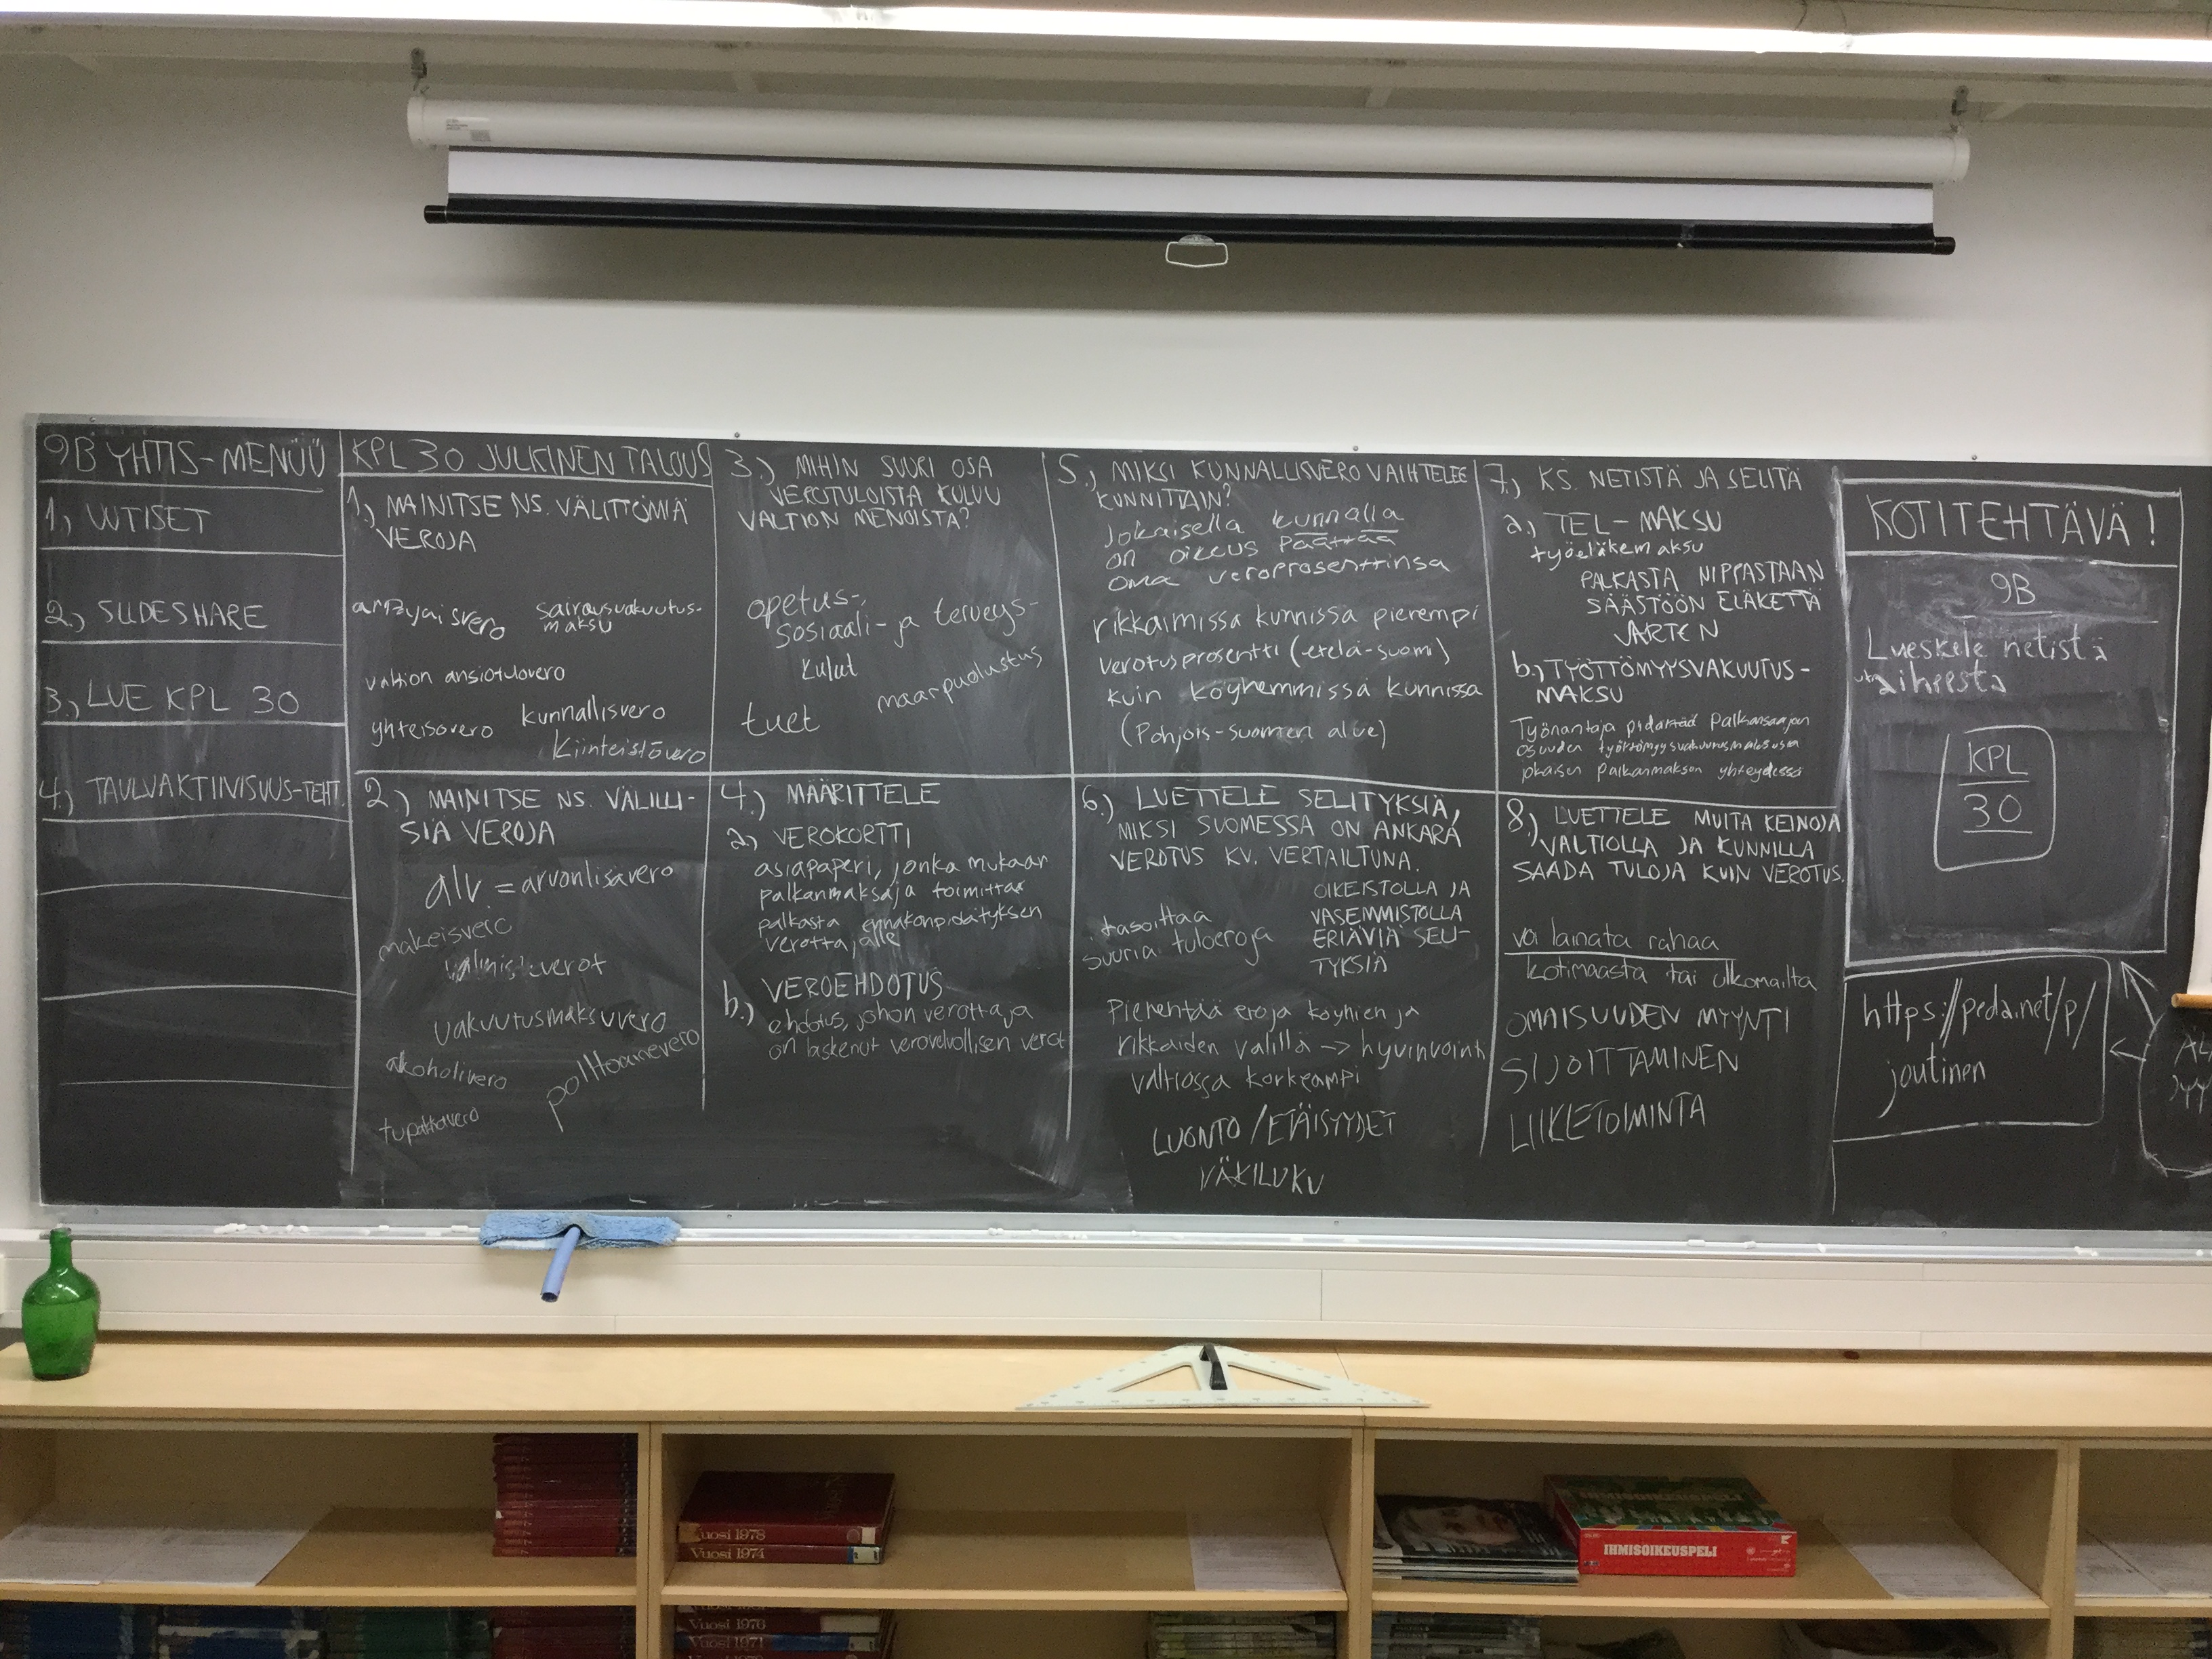 9B YHTIS-MENÜÜ
1) UUTISET
2) SLIDESHARE
3.) LUE KPL 30
4.) TAULUAKTIIVISUUS-TEHT.
KPL 30 JULKINEN TALOUS
1.) MAINITSE NS. VÄLITTÖMIÄ
VEROJA
sairausvakuutus-
maksu
valtion ansiotulovero
yhteisövero kunnallisvero
Kiinteistövero
2.) MAINITSE NS. VÄLILLI-
SIÄ VEROJA
alv. = arvonlisävero
makeisvero
valmisteverot
vakuutusmaksuvero
alkoholivero
polttoainevero
tupakkavero
3.) MIHIN SUURI OSA
VEROTULOISTA KULUU
VALTION MENOISTA?
opetus-,
sosiaali- ja terveys-
kulut
maanpuolustus
tuet
4.) MÄÄRITTELE
a) VEROKORTTI
asiapaperi, jonka mukaan
palkanmaksaja toimittaa
palkasta ennakonpidätyksen
verottajalle
b.) VEROEHDOTUS
ehdotus, johon verottaja
on laskenut verovelvollisen verot
5.) MIKSI KUNNALLISVERO VAIHTELEE
KUNNITTAIN?
Jokaisella kunnalla
on oikeus päättää
oma veroprosenttinsa
rikkaimissa kunnissa pierempi
verotusprosentti (etelä-suomi)
kuin köyhemmissä kunnissa
(Pohjois-Suomen alue)
6.) LUETTELE SELITYKSIÄ,
MIKSI SUOMESSA ON ANKARA
VEROTUS KV. VERTAILTUNA.
tasoittaa
suuria tuloeroja
OIKEISTOLLA JA
VASEMMISTOLLA
ERIÄVIÄ SELI-
TYKSIÄ
Pienentää eroja köyhien ja
rikkaiden välillä → hyvinvointi
valtiossa korkeampi
LUONTO / ETÄISYYDET
VÄKILUKU
7.) KS. NETISTÄ JA SELITÄ
a.) TEL-MAKSU
työeläkemaksu
PALKASTA NIPPASTAAN
SÄÄSTÖÖN ELÄKETTÄ
VARTEN
b.) TYÖTTÖMYYSVAKUUTUS-
MAKSU
Työnantaja pidättää Palkansaajan
osuuden työttömyysvakuutusmaksusta
jokaisen Palkanmaksun yhteydessä
8.) LUETTELE MUITA KEINOJA
VALTIOLLA JA KUNNILLA
SAADA TULOJA KUIN VEROTUS.
voi lainata rahaa
kotimaasta tai ulkomailta
OMAISUUDEN MYYNTI
SIJOITTAMINEN
LIIKETOIMINTA
KOTITEHTÄVÄ!
9B
Lueskele netistä
aiheesta
KPL
30
https://peda.net/p/
joutinen
Vuosi 1978
Vuosi 1974
Vuosi 1976
Vuosi 1971
IHMISOIKEUSPELI
IHMISOIKEUSPELI